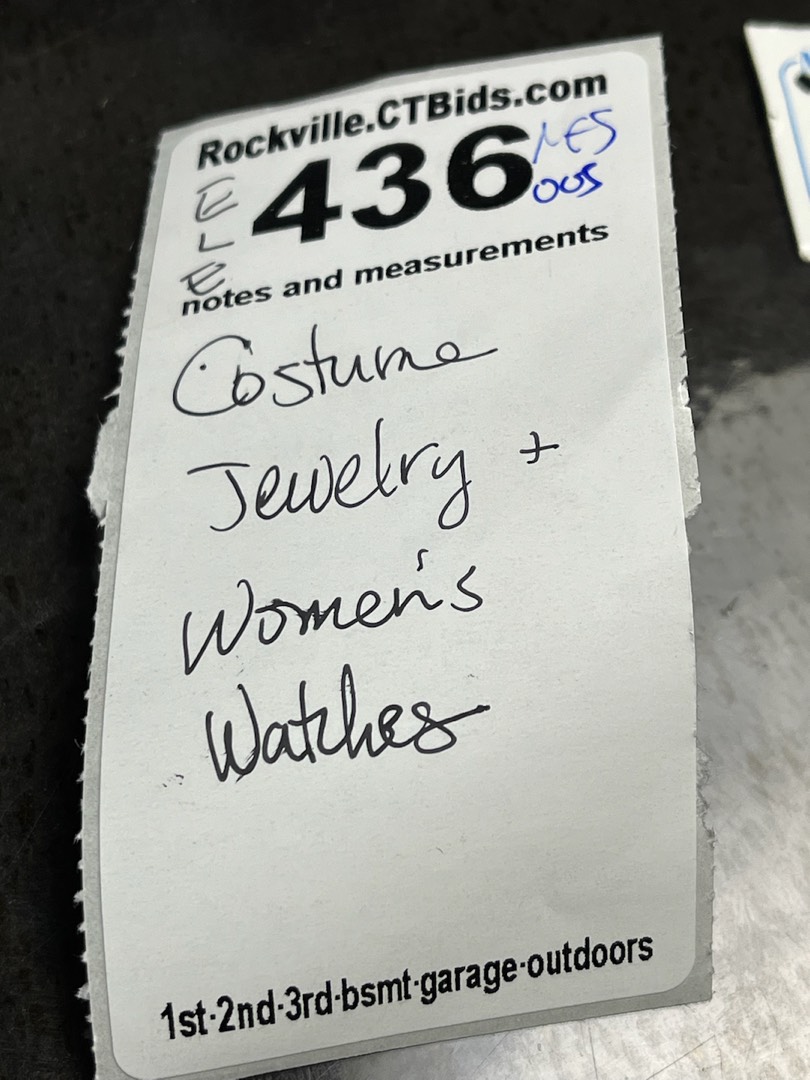 Rockville.CTBids.com
436
NES
005
E
L
E
notes and measurements
Costume
Jewelry +
Women's
Watches
1st-2nd-3rd-bsmt-garage-outdoors